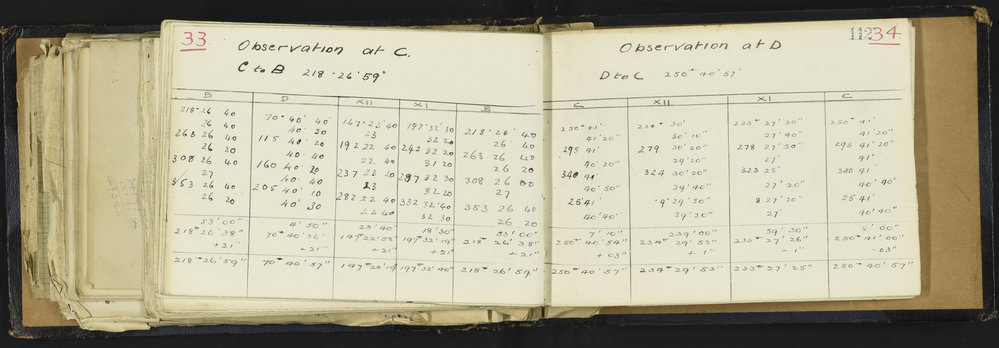 33
Observation at C.
C to B 218° 26' 59"
B D XII XI B
218° 26' 40 70° 40' 40 147° 23' 40 197° 32' 30 218° 26' 40
26 40 40 30 23 32 20 26' 40
263 26 40 115 40' 20 192 22 40 242 32 20 263 26 40
26 20 40 40 22 40 31 20 26 20
308 26 40 160 40 237 23 20 32 30 308 26
27 40 40 32 20 27
353 26 40 205 40' 10 282 22 40 332 32' 40 353 26 40
26 20 40' 30 22 40 32 30 26 20
53' 00" 4' 50" 23' 40 18' 30" 53' 00"
218° 26' 38" 70° 40' 36" 197° 32' 19" 218° 26' 38"
+21" +21" +21 +21" +21"
218° 26' 59" 70° 40' 57" 197° 32' 40" 218° 26' 59"
112
34
Observation at D
D to C 250° 40' 57'
C XII XI C
250° 41' 234° 30' 233° 27' 20" 250° 41'
41' 20" 30' 10" 27' 40" 41' 20"
295 41' 279 30' 20" 278 27' 50" 295 41' 20
40' 20" 29' 20" 27' 41'
340 41' 324 30' 20" 323 28' 340 41'
40' 50" 29' 40" 27' 20" 40' 40"
25 41' 9° 29' 50" 8 27' 20" 25 41'
40' 40" 29' 20" 27' 40' 40"
7' 10" 239' 00" 59' 30" 8' 00"
250° 40' 54" 234° 29' 52" 233° 27' 26" 250° 41' 00"
+03" +1" -1" -03"
250° 40' 57" 234° 29' 53" 233° 27' 25" 250° 40' 57"